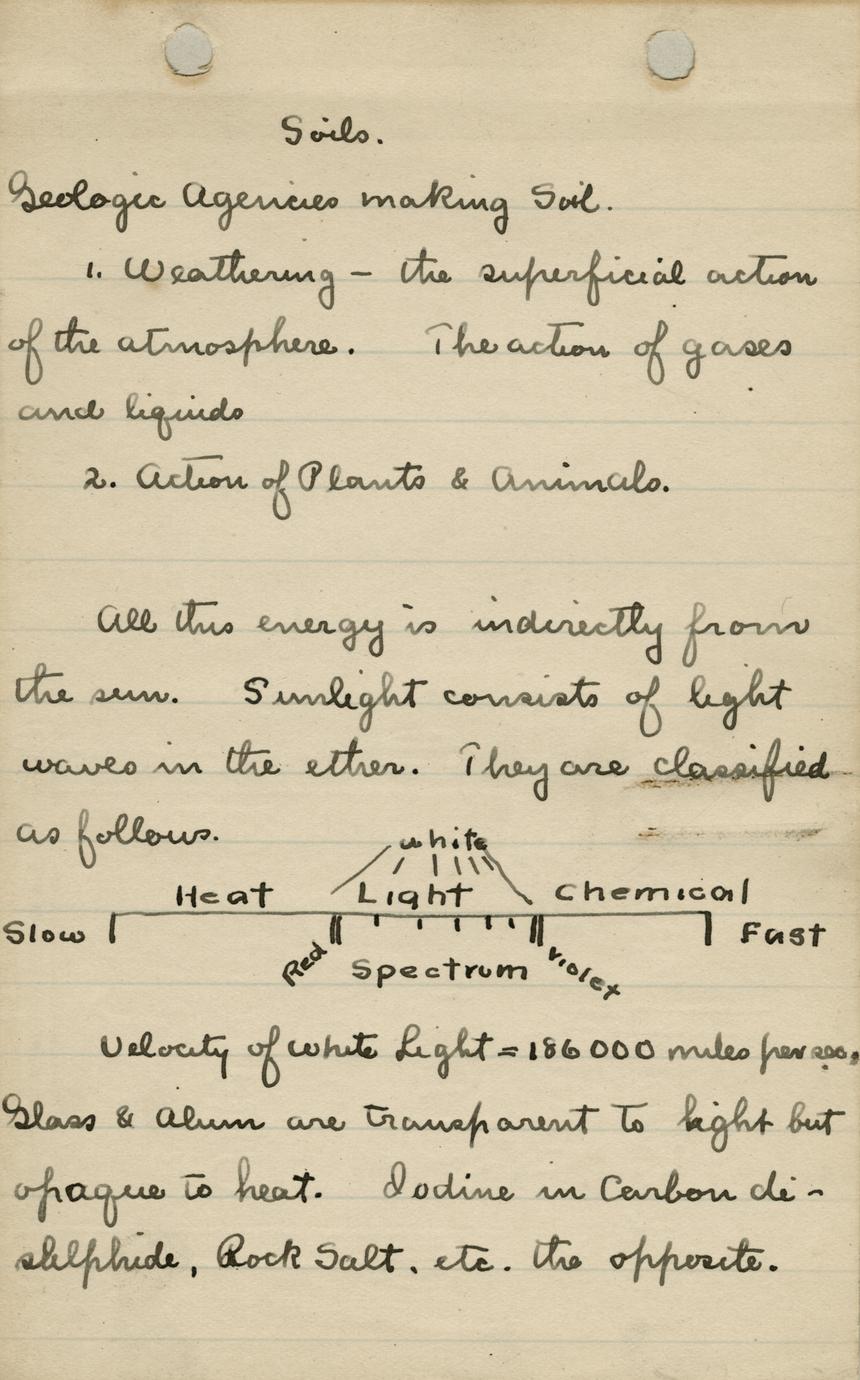 Soils.
Geologic Agencies making Soil.
1. Weathering - the superficial action
of the atmosphere. The action of gases
and liquids
2. Action of Plants & Animals.
All this energy is indirectly from
the sun. Sunlight consists of light
waves in the ether. They are classified
as follows.
white
Heat Light Chemical
Slow Fast
Red Spectrum Violex
Velocity of white Light = 186000 miles per sec.
Glass & Alum are transparent to light but
opaque to heat. Iodine in Carbon di-
slelphide, Rock Salt. etc. the opposite.